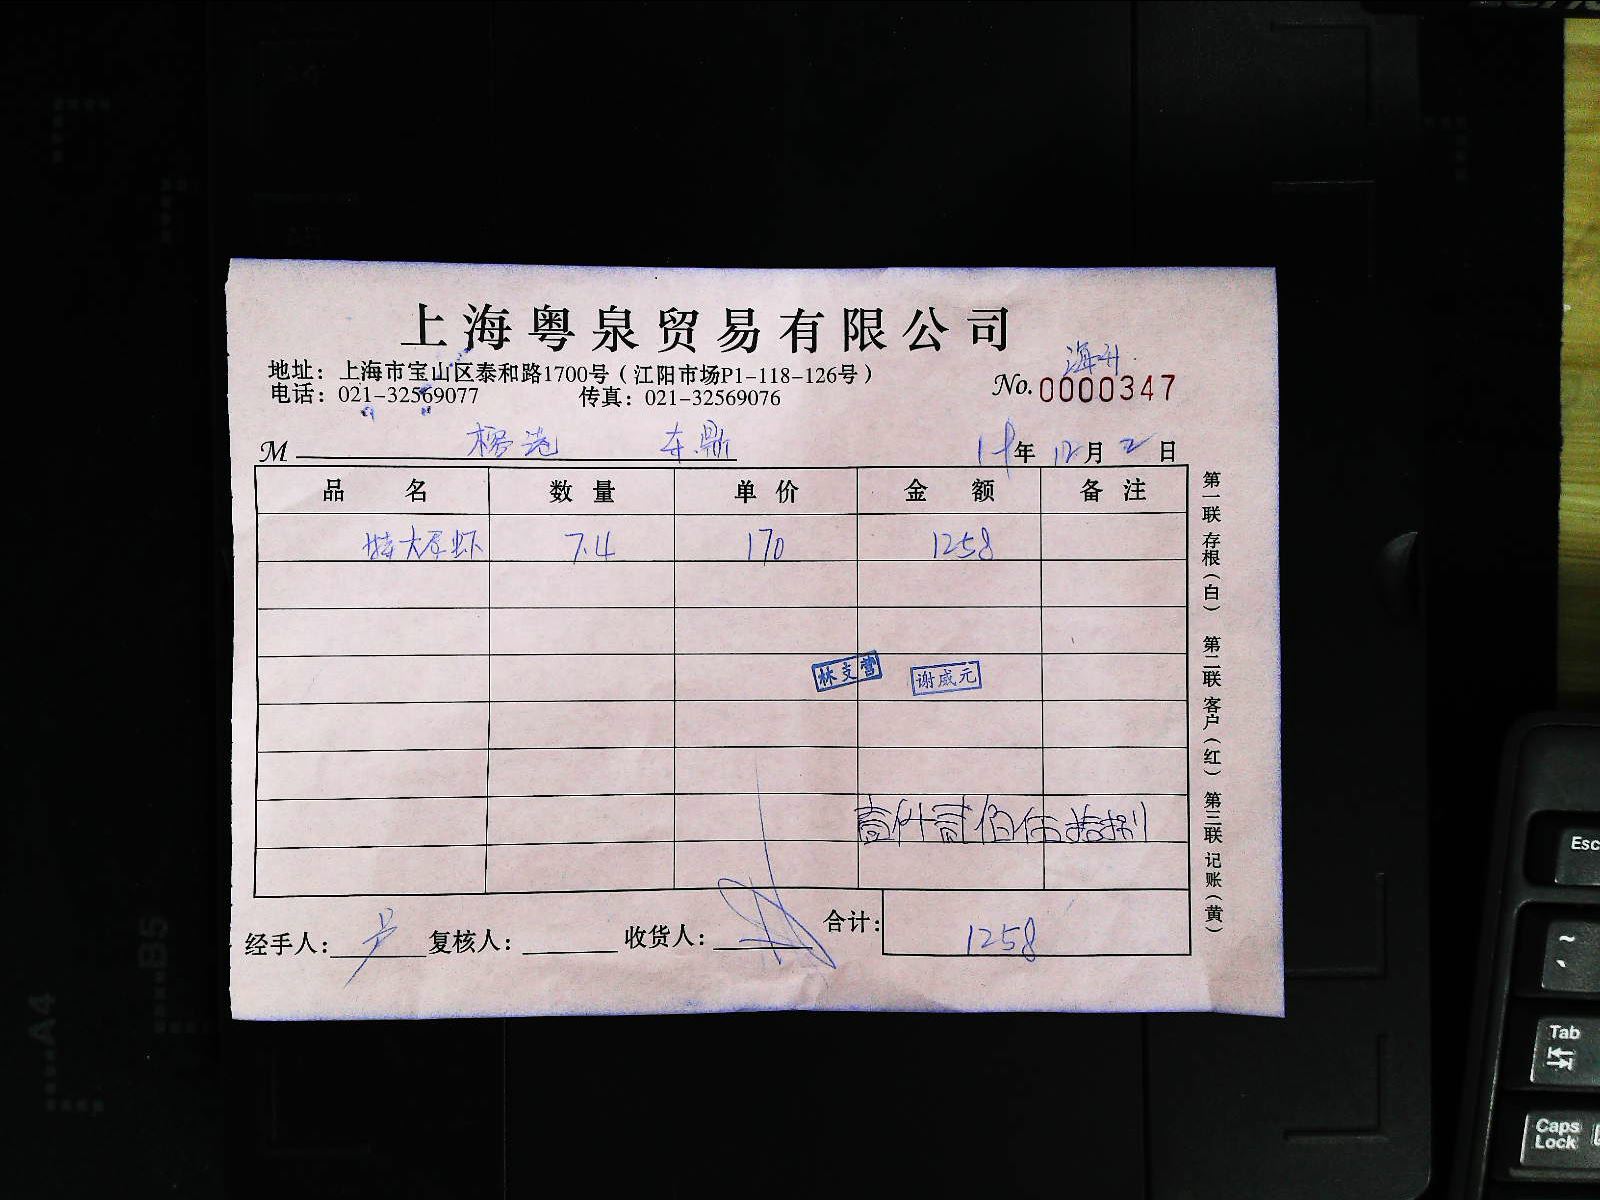 上海粤泉贸易有限公司
地址：上海市宝山区泰和路1700号（江阳市场P1-118-126号）
电话：021-32569077 传真：021-32569076
No. 0000347
M 榕港 东鼎 年 12月2日
品名 数量 单价 金额 备注
特大 虾 7.4 170 1258
林支营 谢威元
壹仟贰佰伍拾捌
合计：1258
经手人： 复核人： 收货人：
第一联 存根（白） 第二联 客户（红） 第三联 记账（黄）
A4
B5
Esc
~
Tab
Caps Lock